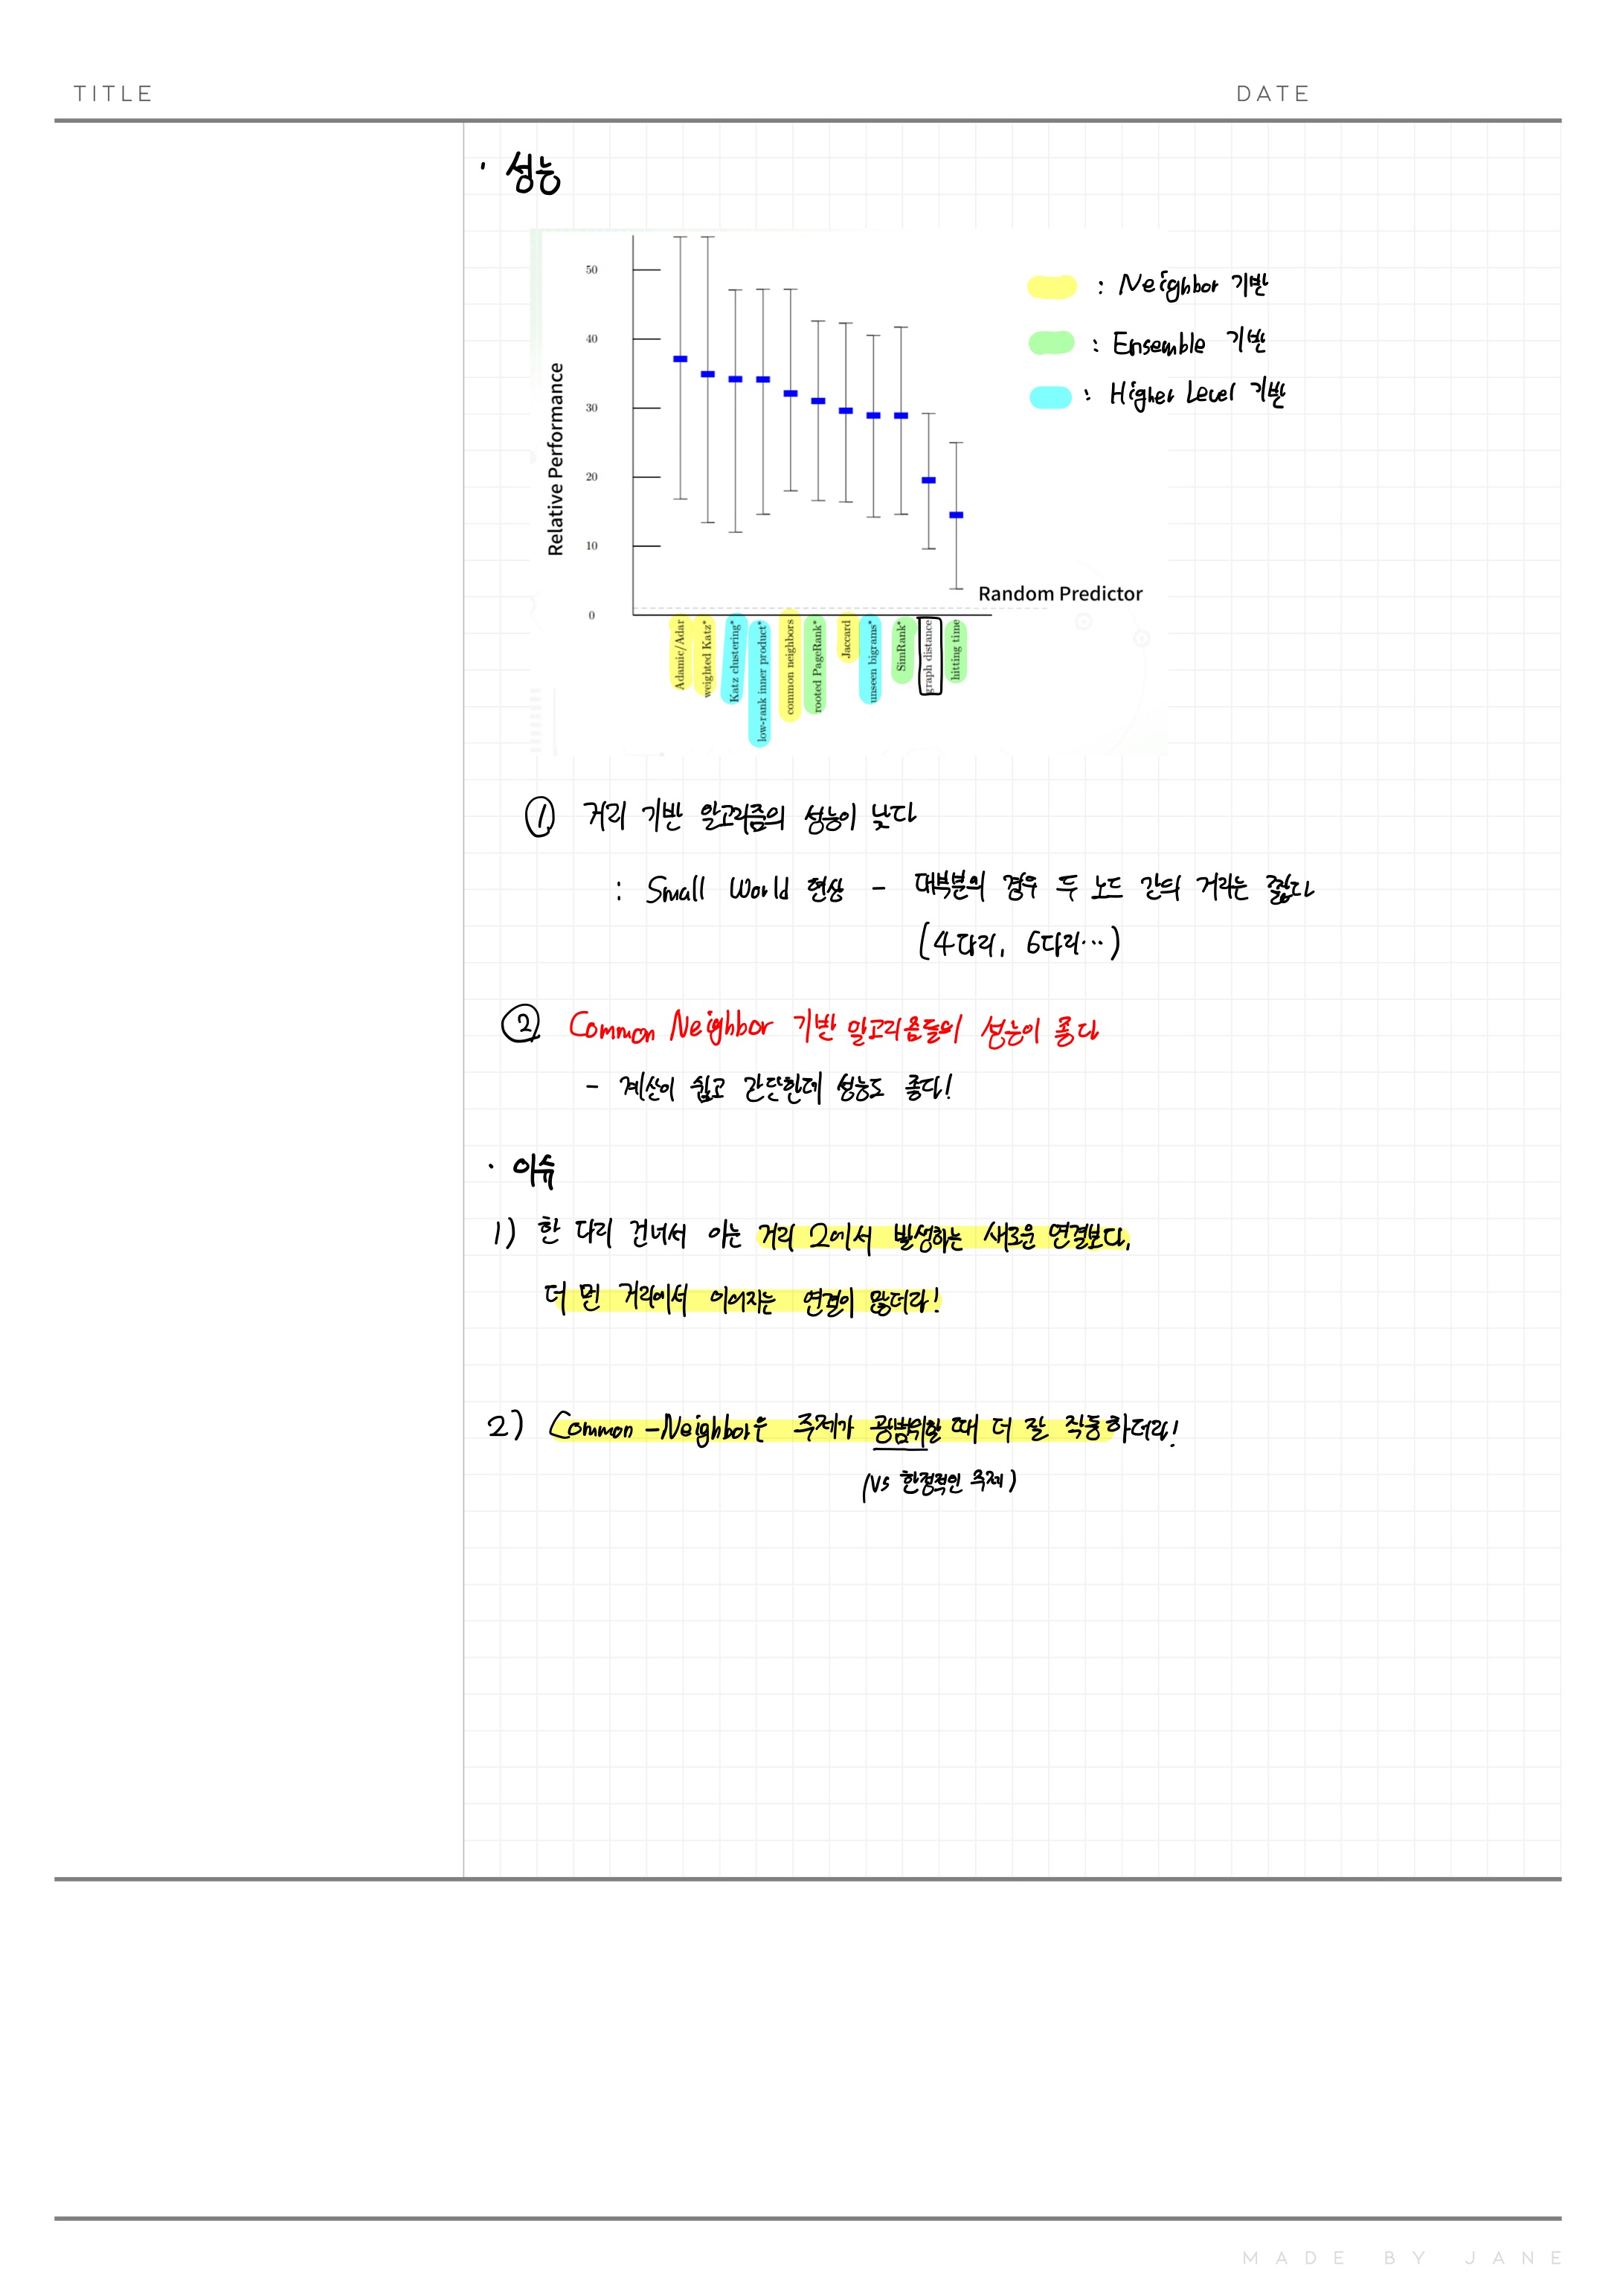 TITLE
DATE
· 성능
50
40
30
20
10
0
Relative Performance
Random Predictor
Adamic/Adar
weighted Katz*
Katz clustering*
low-rank inner product*
common neighbors
rooted PageRank*
Jaccard
unseen bigrams*
SimRank*
graph distance
hitting time
: Neighbor 기반
: Ensemble 기반
: Higher Level 기반
① 거리 기반 알고리즘의 성능이 낮다
: Small World 현상 - 대부분의 경우 두 노드 간의 거리는 짧다
(4다리, 6다리…)
② Common Neighbor 기반 알고리즘들의 성능이 좋다
- 계산이 쉽고 간단한데 성능도 좋다!
· 이슈
1) 한 다리 건너서 아는 거리 2에서 발생하는 새로운 연결보다,
더 먼 거리에서 이어지는 연결이 많더라!
2) Common-Neighbor은 주제가 광범위할 때 더 잘 작동하더라!
(vs 한정적인 주제)
MADE BY JANE